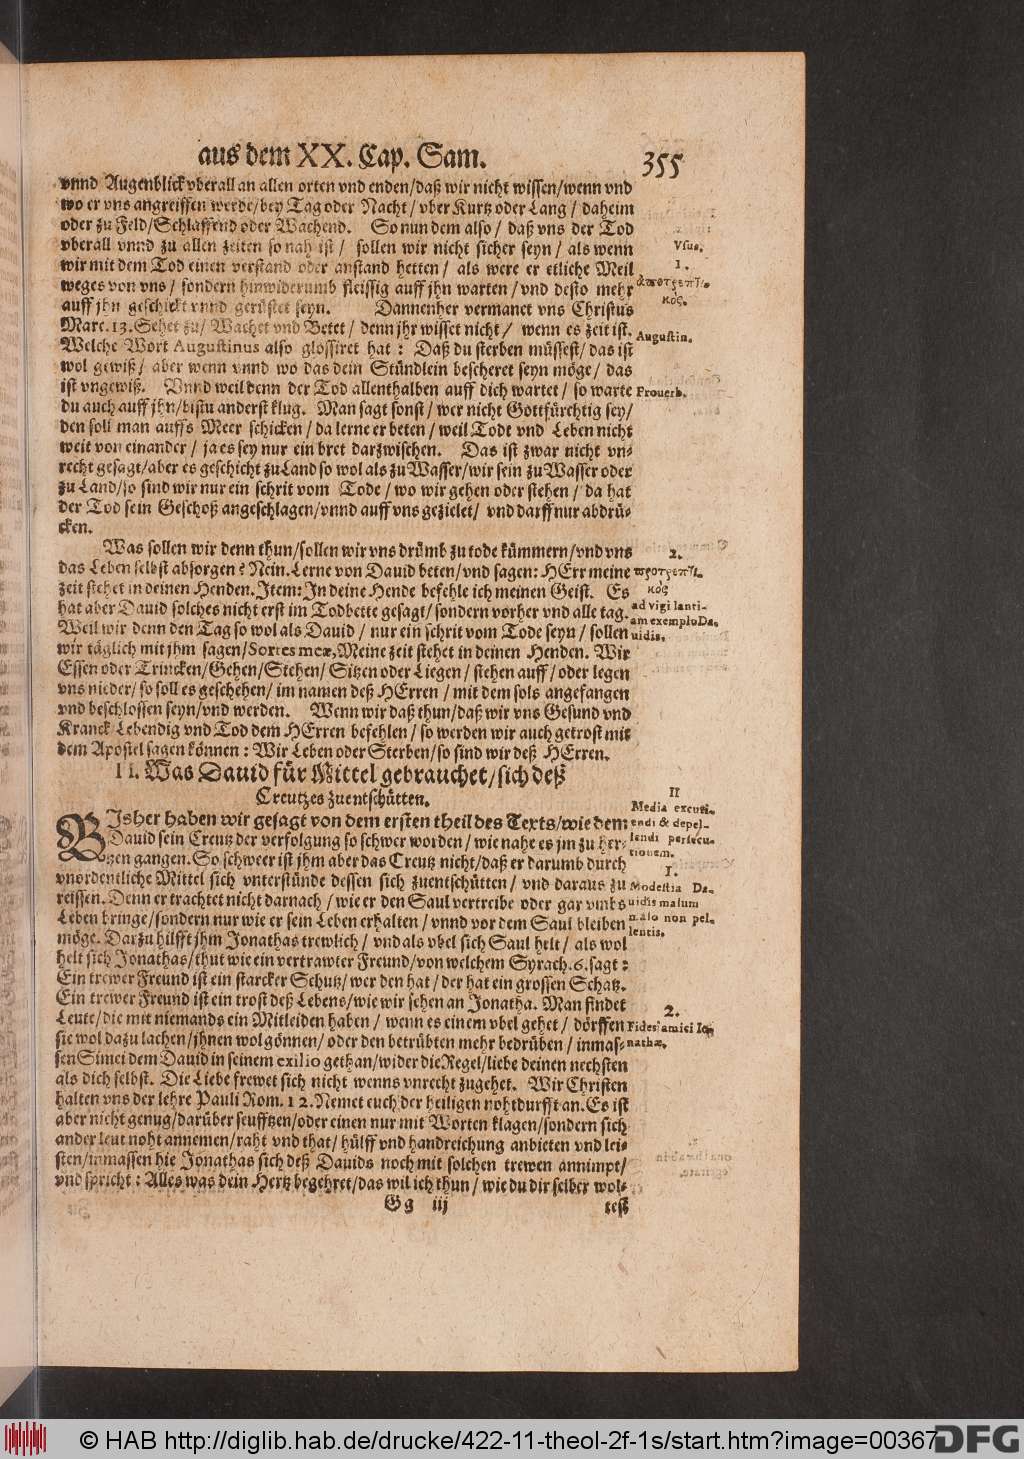 aus dem XX. Cap. Sam.
355
vnnd Augenblick vberall an allen orten vnd enden/daß wir nicht wissen/wenn vnd
wo er vns angreiffen werde/bey Tag oder Nacht/ vber Kurtz oder Lang/ daheim
oder zu Feld/Schlaffend oder Wachend. So nun dem also/ daß vns der Tod
vberall vnnd zu allen zeiten so nah ist/ sollen wir nicht sicher seyn/ als wenn
wir mit dem Tod einen verstand oder anstand hetten/ als were er etliche Meil
weges von vns/ sondern hinwiderumb fleissig auff jhn warten/ vnd desto mehr
auff jhn geschickt vnnd gerüstet seyn. Dannenher vermanet vns Christus
Marc. 13. Sehet zu/ Wachet vnd Betet/ denn jhr wisset nicht/ wenn es zeit ist.
Welche Wort Augustinus also glossiret hat: Daß du sterben müssest/ das ist
wol gewiß/ aber wenn vnnd wo das dein Stündlein bescheret seyn möge/ das
ist vngewiß. Vnnd weil denn der Tod allenthalben auff dich wartet/ so warte
du auch auff jhn/bistu anderst klug. Man sagt sonst/ wer nicht Gottfürchtig sey/
den soll man auffs Meer schicken/ da lerne er beten/ weil Todt vnd Leben nicht
weit von einander/ ja es sey nur ein bret darzwischen. Das ist zwar nicht vn-
recht gesagt/aber es geschicht zu Land so wol als zu Wasser/wir sein zu Wasser oder
zu Land/so sind wir nur ein schrit vom Tode/ wo wir gehen oder stehen/ da hat
der Tod sein Geschoß angeschlagen/vnnd auff vns gezielet/ vnd darff nur abdrü-
cken.
Vsus.
1.
ἀποτρεπτι-
κός.
Augustin.
Prouerb.
Was sollen wir denn thun/sollen wir vns drümb zu tode kümmern/vnd vns
das Leben selbst absorgen? Nein. Lerne von Dauid beten/vnd sagen: HErr meine
zeit stehet in deinen Henden. Item: In deine Hende befehle ich meinen Geist. Es
hat aber Dauid solches nicht erst im Todbette gesagt/ sondern vorher vnd alle tag.
Weil wir denn den Tag so wol als Dauid/ nur ein schrit vom Tode seyn/ sollen
wir täglich mit jhm sagen/Sortes meæ, Meine zeit stehet in deinen Henden. Wir
Essen oder Trincken/Gehen/Stehen/Sitzen oder Liegen/ stehen auff/ oder legen
vns nieder/ so soll es geschehen/ im namen deß HErren/ mit dem sols angefangen
vnd beschlossen seyn/vnd werden. Wenn wir daß thun/daß wir vns Gesund vnd
Kranck Lebendig vnd Tod dem HErren befehlen/ so werden wir auch getrost mit
dem Apostel sagen können: Wir Leben oder Sterben/ so sind wir deß HErren.
2.
προτρεπτι-
κὸς
ad vigilanti-
am exemplo Da-
uidis.
II. Was Dauid für Mittel gebrauchet/sich deß
Creutzes zuentschütten.
BIsher haben wir gesagt von dem ersten theil des Texts/wie dem
Dauid sein Creutz der verfolgung so schwer worden/ wie nahe es jm zu her-
tzen gangen. So schweer ist jhm aber das Creutz nicht/daß er darumb durch
vnordentliche Mittel sich vnterstünde dessen sich zuentschütten/ vnd daraus zu
reissen. Denn er trachtet nicht darnach/ wie er den Saul vertreibe oder gar vmbs
Leben bringe/sondern nur wie er sein Leben erhalten/ vnnd vor dem Saul bleiben
möge. Darzu hilfft jhm Jonathas trewlich/ vnd als vbel sich Saul helt/ als wol
helt sich Jonathas/thut wie ein vertrawter Freund/von welchem Syrach. 6. sagt:
Ein trewer Freund ist ein starcker Schutz/ wer den hat/ der hat ein grossen Schatz.
Ein trewer Freund ist ein trost deß Lebens/wie wir sehen an Jonatha. Man findet
Leute/die mit niemands ein Mitleiden haben/ wenn es einem vbel gehet/ dörffen
sie wol dazu lachen/jhnen wol gönnen/ oder den betrübten mehr bedrüben/ inmas-
sen Simei dem Dauid in seinem exilio gethan/wider die Regel/liebe deinen nechsten
als dich selbst. Die Liebe frewet sich nicht wenns vnrecht zugehet. Wir Christen
halten vns der lehre Pauli Rom. 12. Nemet euch der heiligen nohtdurfft an. Es ist
aber nicht genug/darüber seufftzen/oder einen nur mit Worten klagen/sondern sich
ander leut noht annemen/raht vnd that/ hülff vnd handreichung anbieten vnd lei-
sten/inmassen hie Jonathas sich deß Dauids noch mit solchen trewen annimpt/
vnd spricht: Alles was dein Hertz begehret/das wil ich thun/ wie du dir selber wol-
II
Media excuti-
endi & depel-
lendi persecu-
tionem.
1.
Modestia Da-
uidis malum
malo non pel-
lentis.
2.
Fides amici Io-
nathæ.
Gg iij
test
© HAB http://diglib.hab.de/drucke/422-11-theol-2f-1s/start.htm?image=00367
DFG